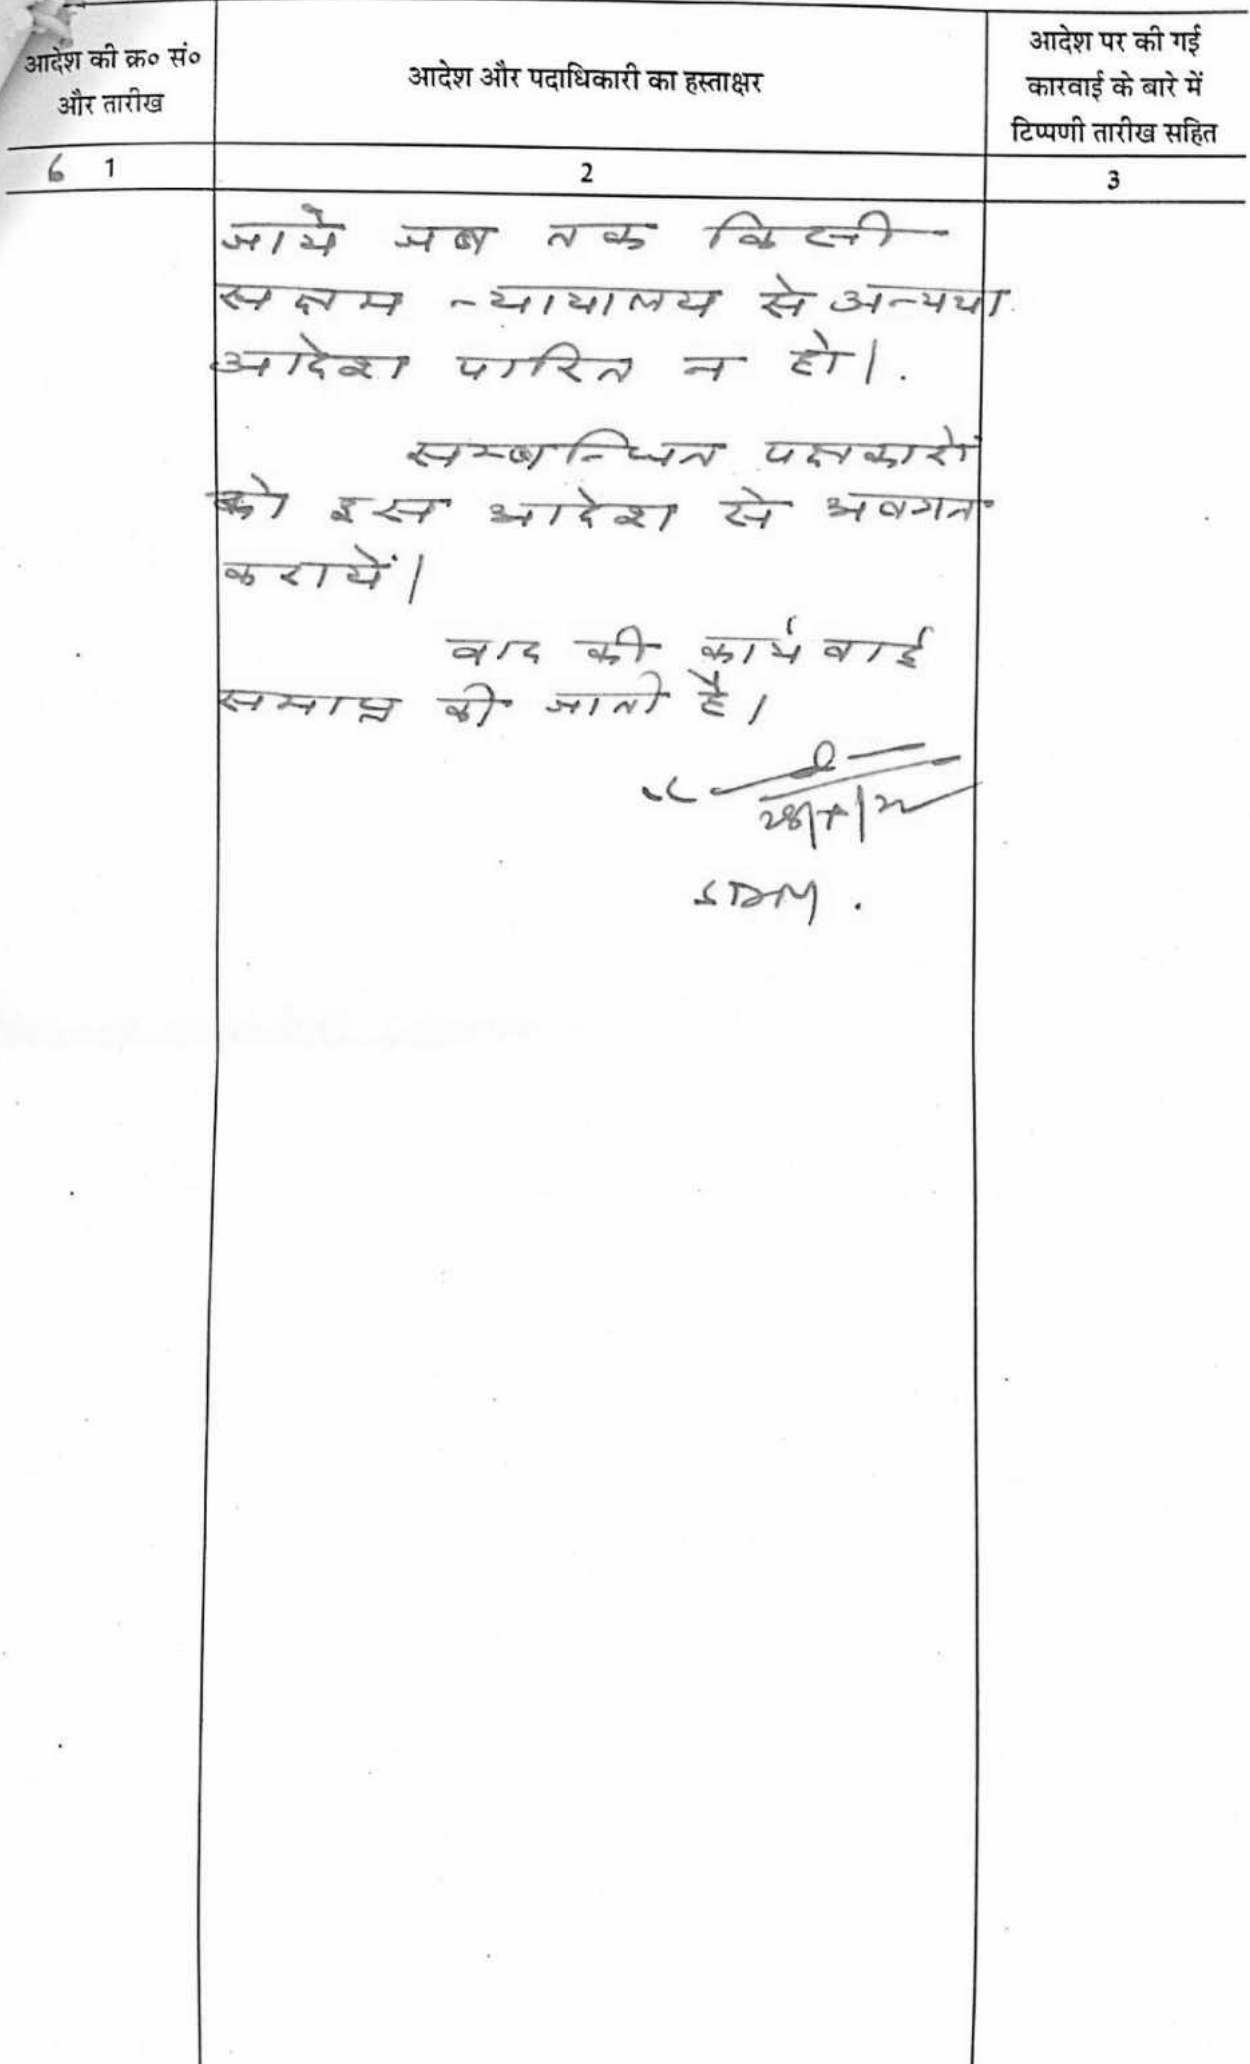 आदेश की क्र० सं०
और तारीख
आदेश और पदाधिकारी का हस्ताक्षर
आदेश पर की गई
कारवाई के बारे में
टिप्पणी तारीख सहित
6 1
2
3
जाये जब तक किसी
सक्षम न्यायालय से अन्यथा
आदेश पारित न हो।
सम्बन्धित पक्षकारों
को इस आदेश से अवगत
करायें।
वाद की कार्यवाई
समाप्त की जाती है।
SDM.